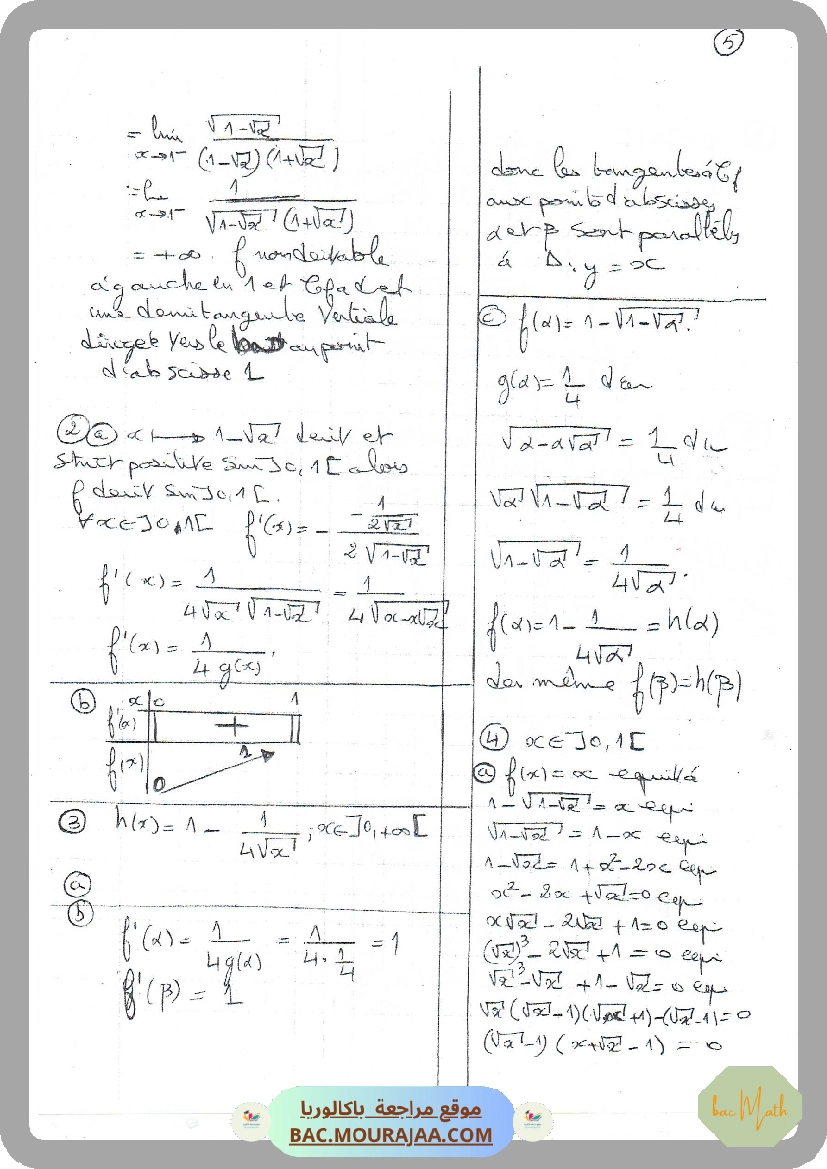 5
= lim √(1-√x) / (1-√x)(1+√x)
x→1⁻
= lim 1 / √(1-√x) (1+√x)
x→1⁻
= +∞. f non derivable
à gauche en 1 et Cf adet
une demi tangente Verticale
dirigée vers le au point
d'abscisse 1
2 a x ⟼ 1-√x derit et
strict positive sur ]0,1[ alors
f derit sur ]0,1[.
∀x∈]0,1[ f'(x) = - (-1/(2√x)) / (2√(1-√x))
f'(x) = 1 / (4√x √(1-√x)) = 1 / (4√(x-x√x))
f'(x) = 1 / (4 g(x)).
b x 0 1
f'(x) +
f(x) 0 1
3 h(x) = 1 - 1/(4√x) ; x∈]0,+∞[
a
b
f'(α) = 1/(4g(α)) = 1/(4.1/4) = 1
f'(β) = 1
donc les tangentes à Cf
aux points d'abscisses
α et β sont parallèles
à Δ: y = x
c f(α) = 1-√(1-√α).
g(α) = 1/4 donc
√(α-α√α) = 1/4 dc
√α √(1-√α) = 1/4 dc
√(1-√α) = 1/(4√α).
f(α) = 1 - 1/(4√α) = h(α)
de même f(β) = h(β)
4 x∈]0,1[
a f(x) = x equit à
1-√(1-√x) = x eqvi
√(1-√x) = 1-x eqvi
1-√x = 1+x²-2x eqvi
x²-2x+√x=0 eqvi
x√x - 2√x + 1 = 0 eqvi
(√x)³ - 2√x + 1 = 0 eqvi
√x³ - √x + 1-√x = 0 eqvi
√x(√x-1)(√x+1)-(√x-1)=0
(√x-1)(x+√x-1) = 0
موقع مراجعة باكالوريا
BAC.MOURAJAA.COM
bac Math